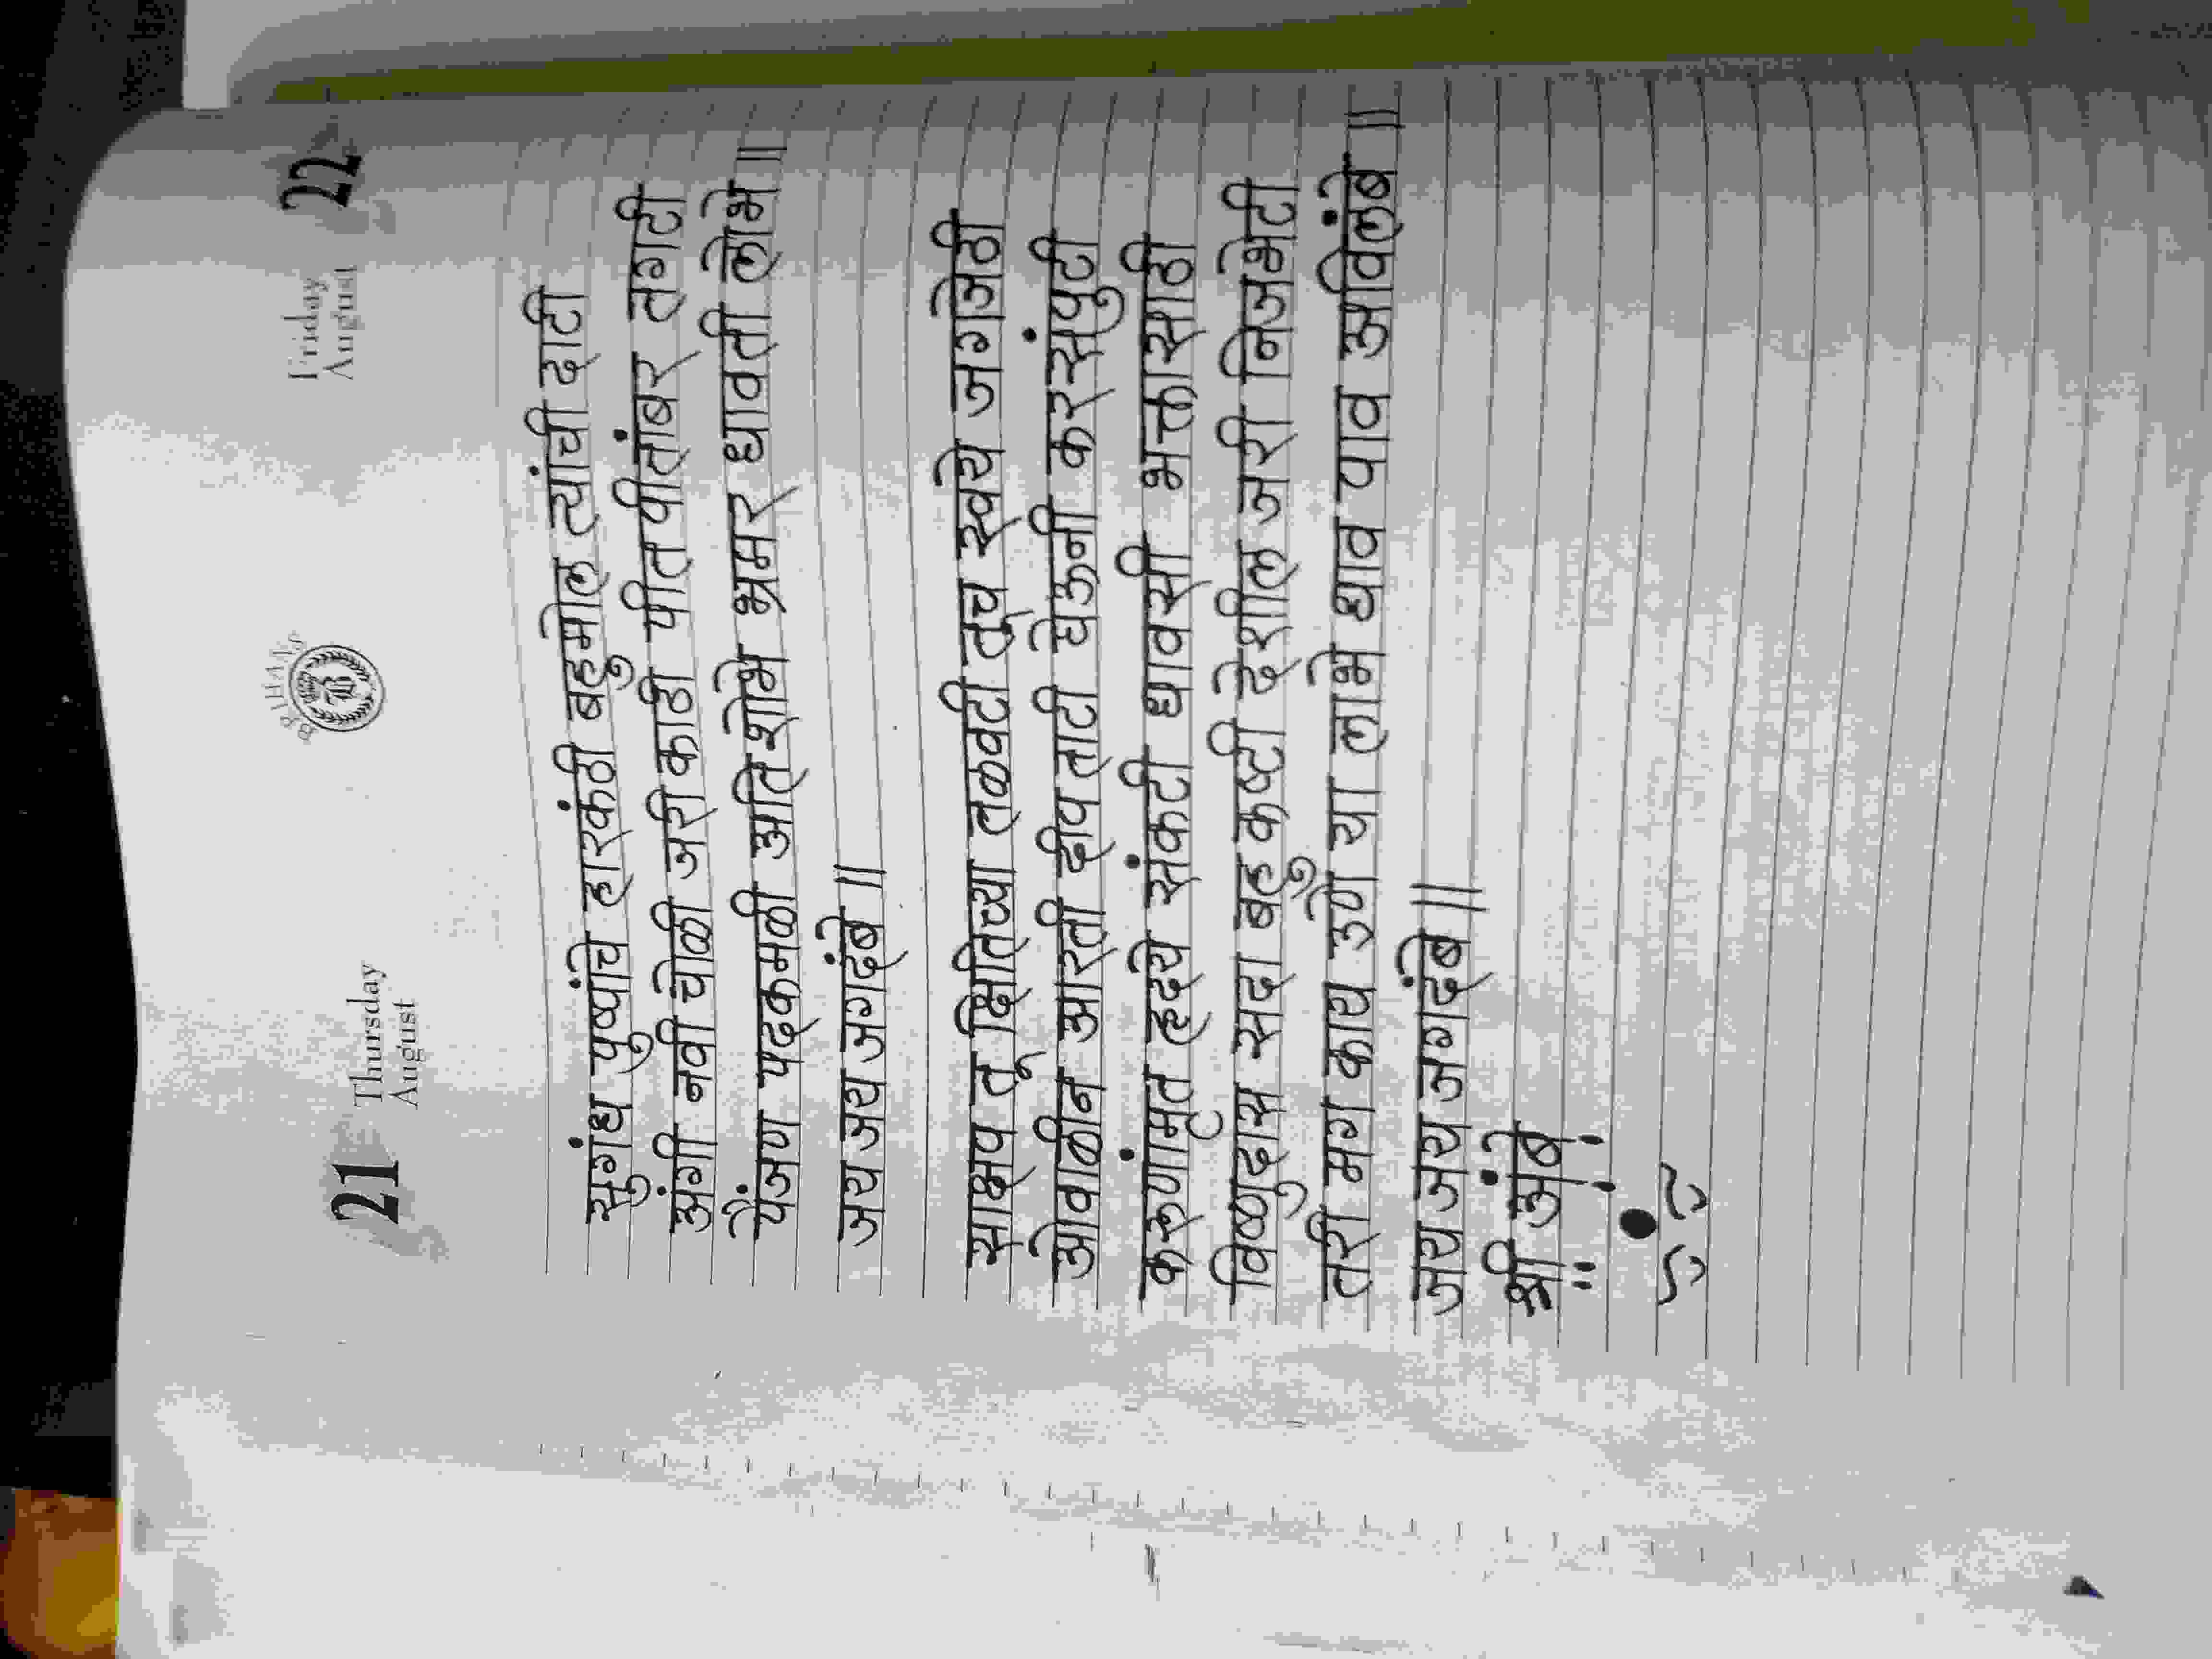 BRIHANS
B
21 Thursday August
Friday August 22
सुगंध पुष्पांचे हारकंठी बहुमोल त्यांची दाटी
अंगी नवी चोळी जरी काठी पीत पीतांबर तगटी
पैंजण पदकमळी अति शोभे भ्रमर धावती लोभे॥
जय जय जगदंबे॥
साक्षप तू क्षितिच्या तळवटी तूच स्वये जगजेठी
ओवाळीन आरती दीप ताटी घेऊनी करसंपुटी
करूणांमृत हृदये संकटी धावसी भक्तासाठी
विष्णुदास सदा बहु कष्टी देशील जरी निजभेटी
तरी मग काय उणे या लाभे धाव पाव अविलंबे॥
जय जय जगदंबे॥
श्री अंबे